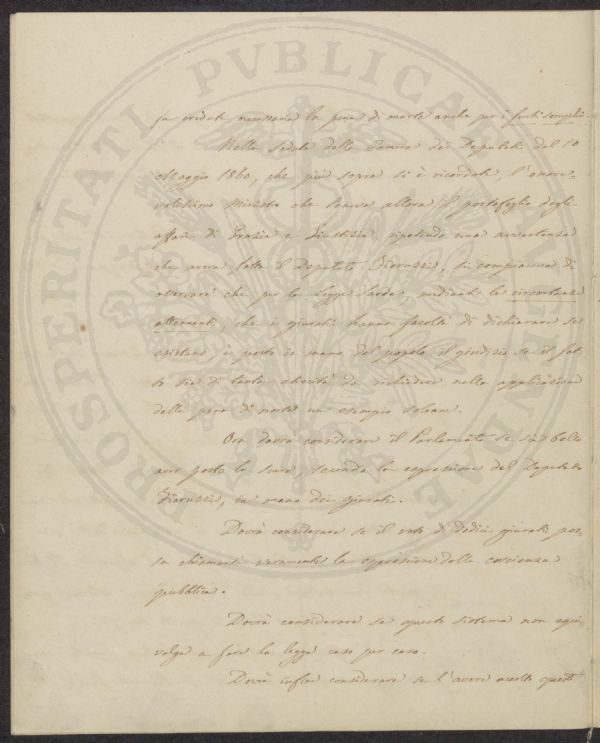 ja creduta necessaria la pena di morte anche per i furti semplici.
Nella seduta della Camera de' Deputati del 10
Maggio 1860, che più sopra si è ricordata, l'onore-
volissimo Ministro che teneva allora il portafoglio degli
affari di Grazia e Giustizia, ripetendo una avvertenza
che aveva fatta il Deputato Fioruzzi, si compiaceva di
osservare che per la legge Sarda, mediante le circostanze
attenuanti, che i giurati hanno facoltà di dichiarare se
esistano, è posto in mano del popolo il giudizio se il fat-
to sia di tanta atrocità da richiedere nella applicazione
della pena di morte un esempio solenne.
Ora dovrà considerare il Parlamento se sia bello
aver posto la scure, secondo la espressione del Deputato
Fioruzzi, in mano dei giurati.
Dovrà considerare se il voto di dodici giurati pos-
sa chiamarsi veramente la espressione della coscienza
pubblica.
Dovrà considerare se questo sistema non equi-
valga a fare la legge caso per caso.
Dovrà infine considerare se l'avere accolto questo
PROSPERITATI PVBLICAE AVGENDAE